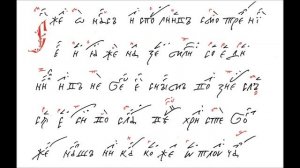 Ꙗ же ѡ насъ и спо лнивъ смо тре нї
е и ꙗже на зе мли со е ди
ни въ не бе снымъ во зне слъ
сѧ е си во сла ве хри сте Бо
же нашъ ни ка ко же ѿ лꙋ ча